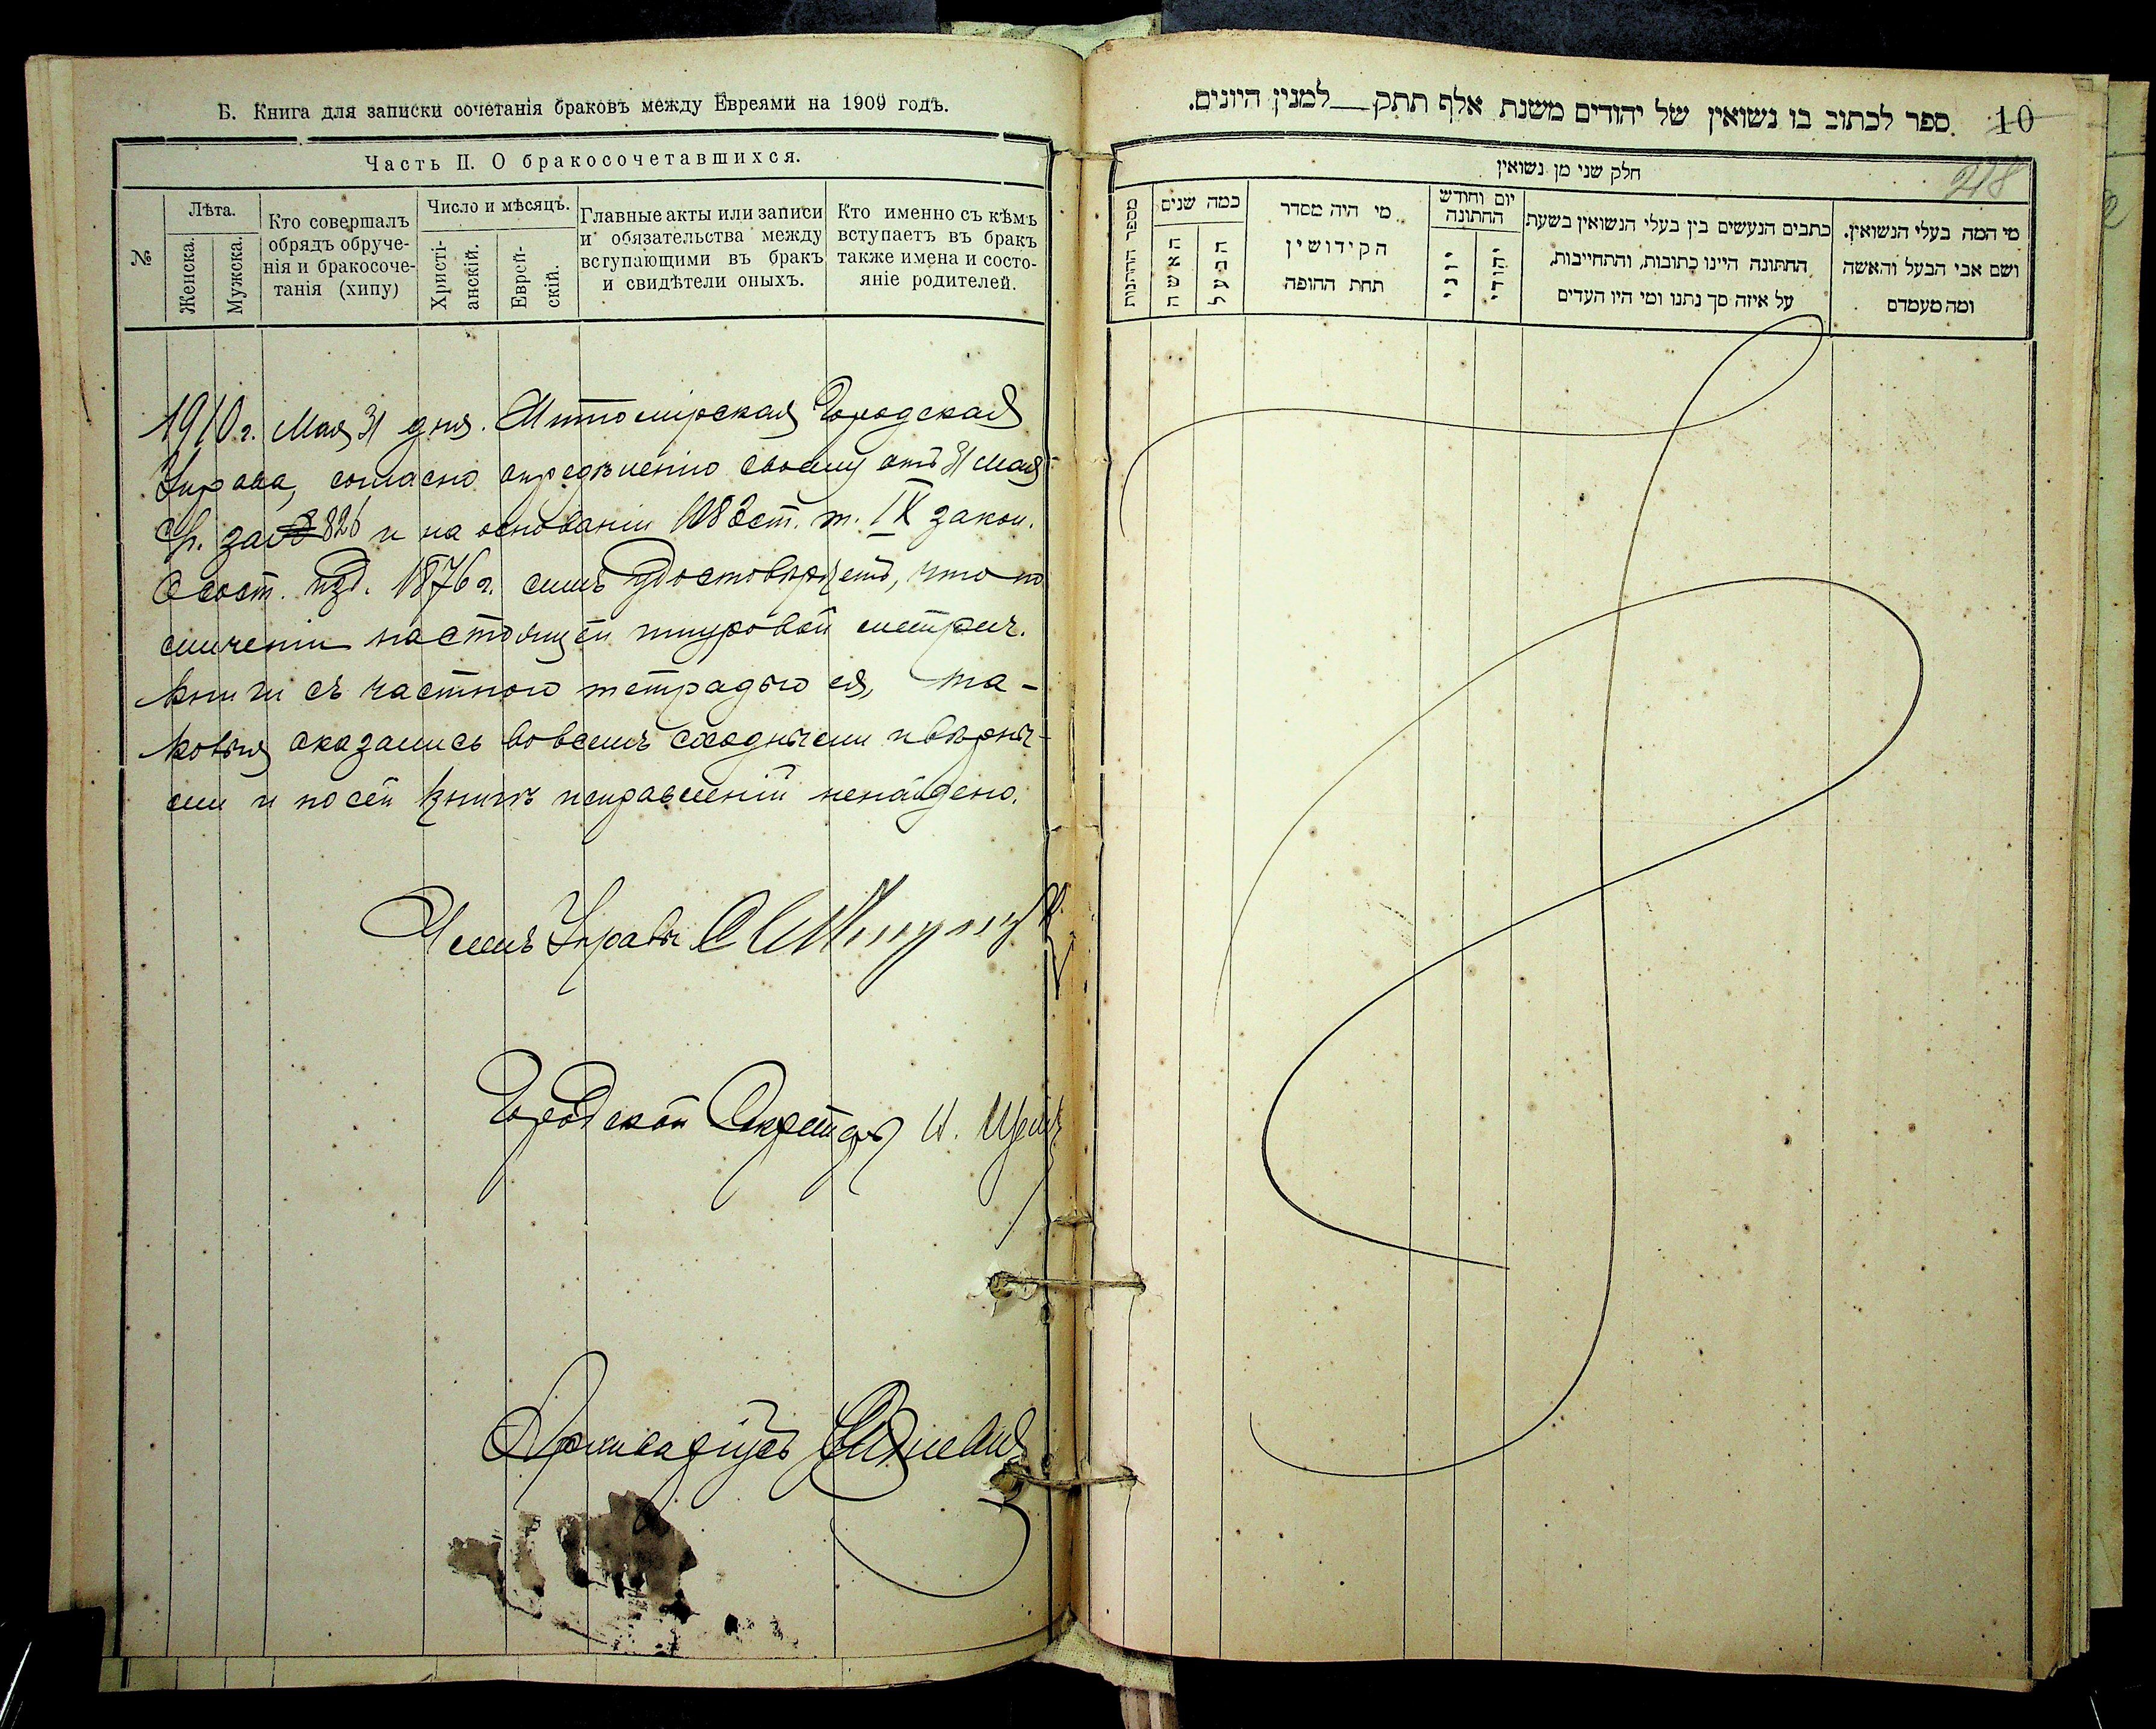 Б. Книга для записки сочетанія браковъ между Евреями на 1909 годъ.
Часть II. О бракосочетавшихся.
№
Лѣта.
Женска.
Мужска.
Кто совершалъ
обрядъ обруче-
нія и бракосоче-
танія (хипу)
Число и мѣсяцъ.
Христі-
анскій.
Еврей-
скій.
Главные акты или записи
и обязательства между
вступающими въ бракъ
и свидѣтели оныхъ.
Кто именно съ кѣмъ
вступаетъ въ бракъ
также имена и состо-
яніе родителей.
1910 г. Мая 31 дня. Житомірская Городская
Управа, согласно опредѣленію своему отъ 31 Мая
с/г. за № 826 и на основаніи 1083 ст. т. IX закон.
О сост. изд. 1876 г. симъ удостовѣряетъ, что по
сличеніи настоящей шнуровой метрич.
книги съ частною тетрадью ея, та-
ковыя оказались во всемъ сходными и вѣрны-
ми и по сей книгѣ исправленій ненайдено.
Членъ Управы
Городской Секретарь
Архиваріусъ
ספר לכתוב בו נשואין של יהודים משנת אלף תתק למנין היונים.
10
218
חלק שני מן נשואין
מי המה בעלי הנשואין.
ושם אבי הבעל והאשה
ומה מעמדם
כתבים הנעשים בין בעלי הנשואין בשעת
החתונה היינו כתובות, והתחייבות,
על איזה סך נתנו ומי היו העדים
יום וחודש
החתונה
יהודי
יוני
מי היה מסדר
הקידושין
תחת החופה
כמה שנים
הבעל
האשה
מספר החתונות